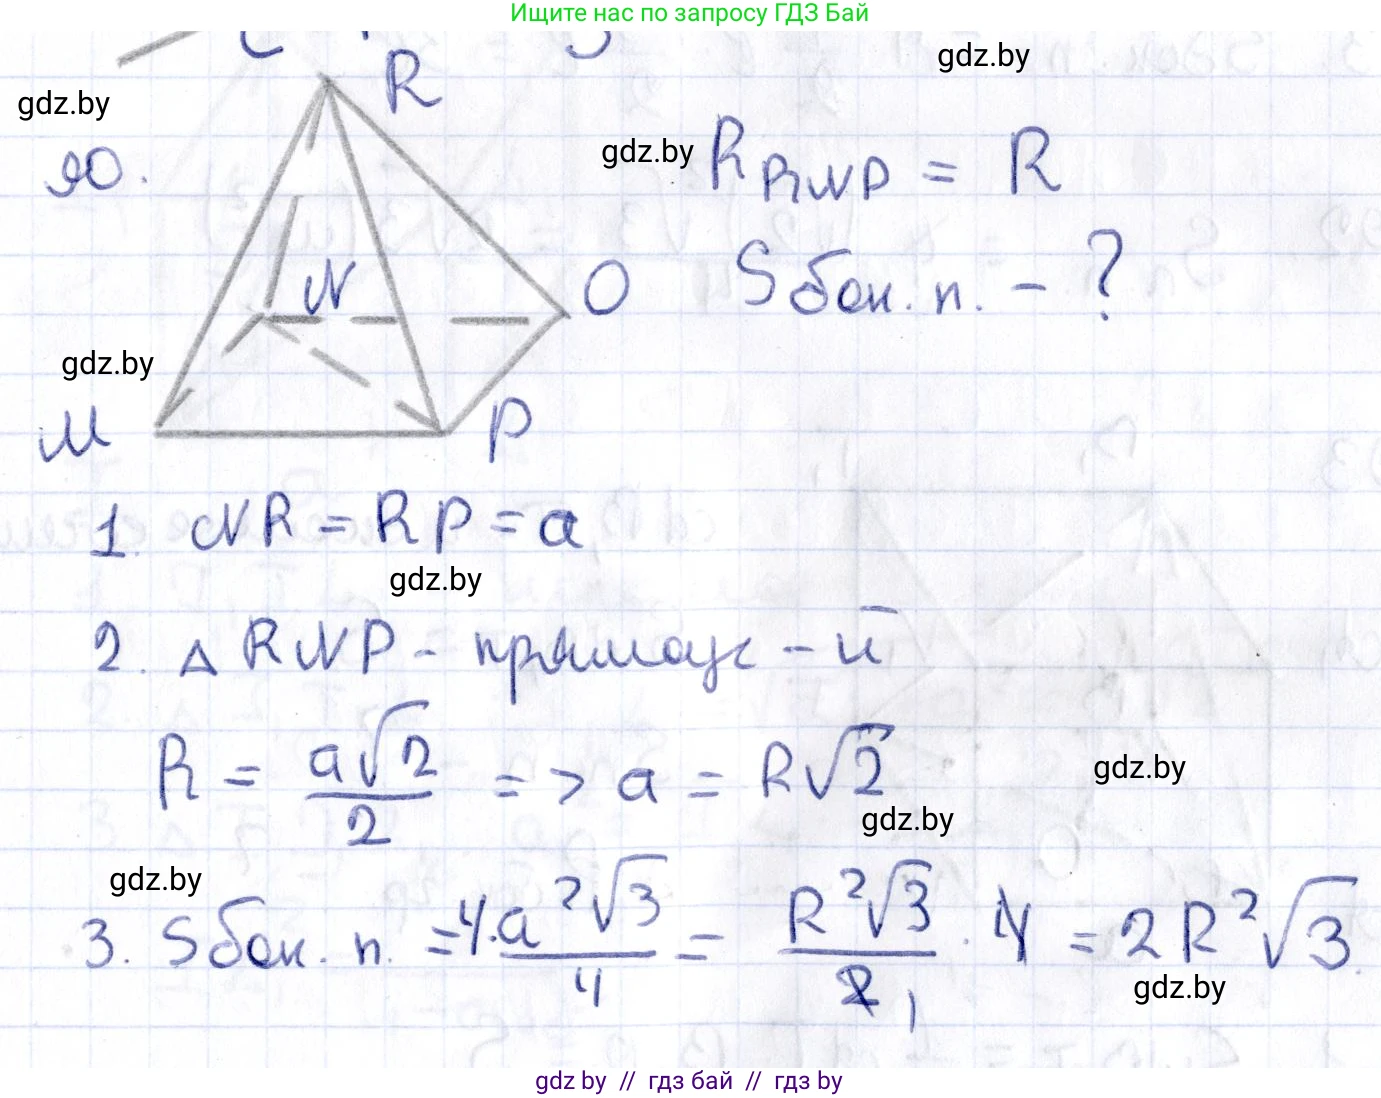 Ищите нас по запросу ГДЗ Бай
gdz.by
R
gdz.by
90.
gdz.by
R RNP = R
N
O
S бок. п. - ?
gdz.by
M
P
1. NR = RP = a
gdz.by
2. △ RNP - прямоуг - й
R = a√2 / 2 => a = R√2
gdz.by
gdz.by
gdz.by
3. S бок. п. = 4 · a²√3 / 4 = R²√3 / 2 1 · 4 = 2R²√3
gdz.by
gdz by // гдз бай // гдз by